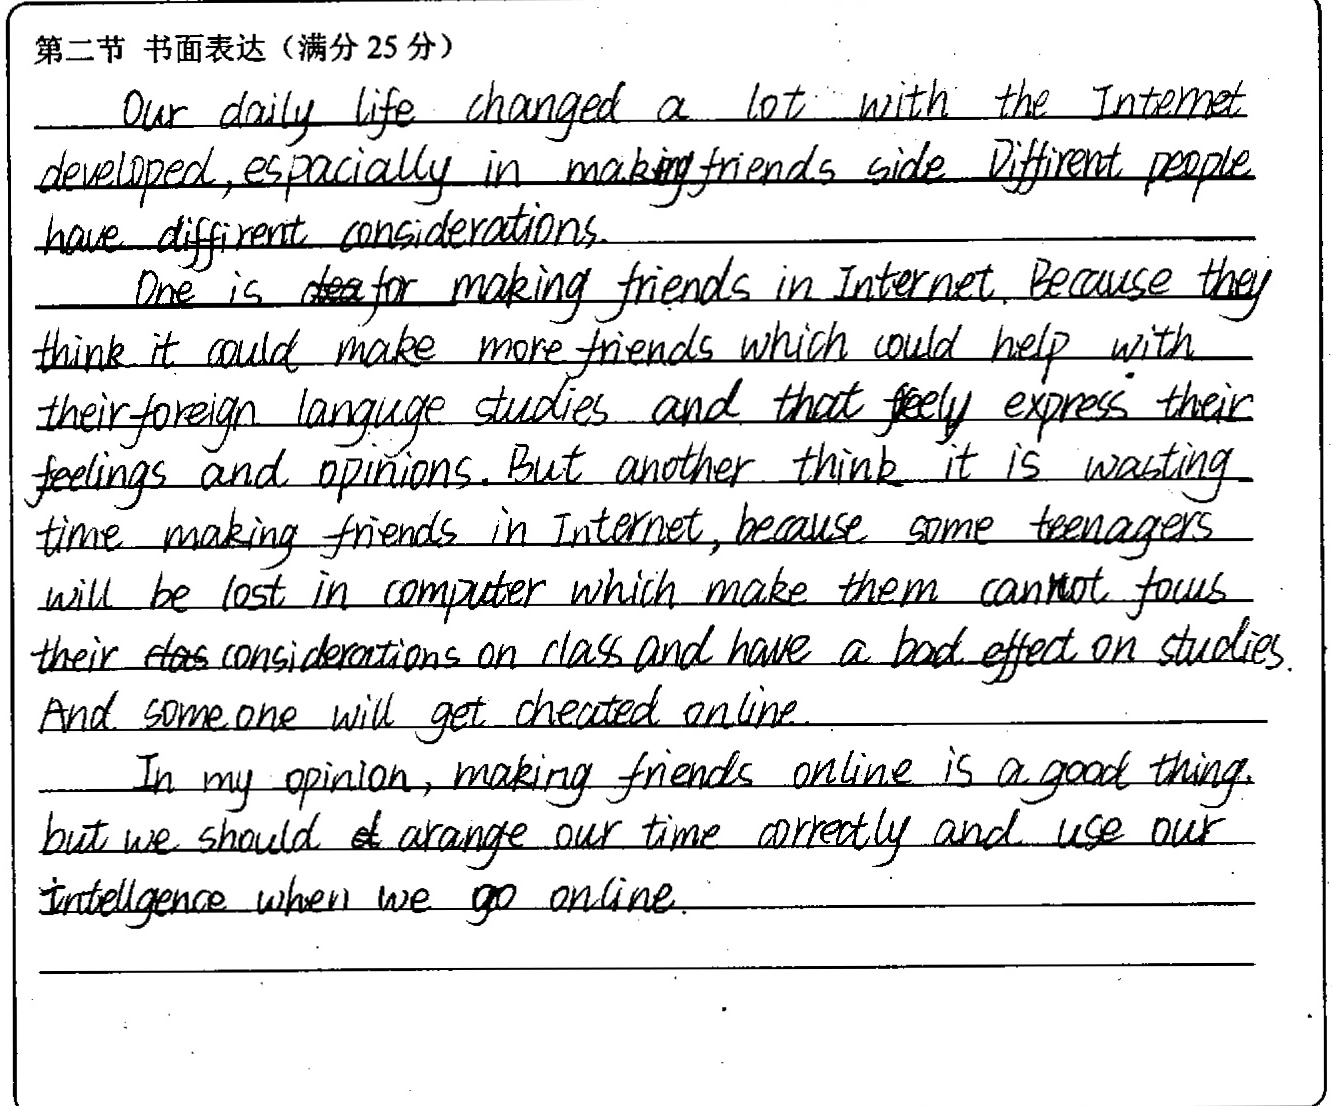 第二节 书面表达（满分 25 分）
Our daily life changed a lot with the Internet
developed, espacially in making friends side Diffirent people
have diffirent considerations.
One is for making friends in Internet. Because they
think it could make more friends which could help with
their foreign languge studies and that feely express their
feelings and opinions. But another think it is wasting
time making friends in Internet, because some teenagers
will be lost in computer which make them cannot focus
their considerations on class and have a bad effect on studies.
And someone will get cheated online.
In my opinion, making friends online is a good thing.
but we should arange our time correctly and use our
intellgence when we go online.